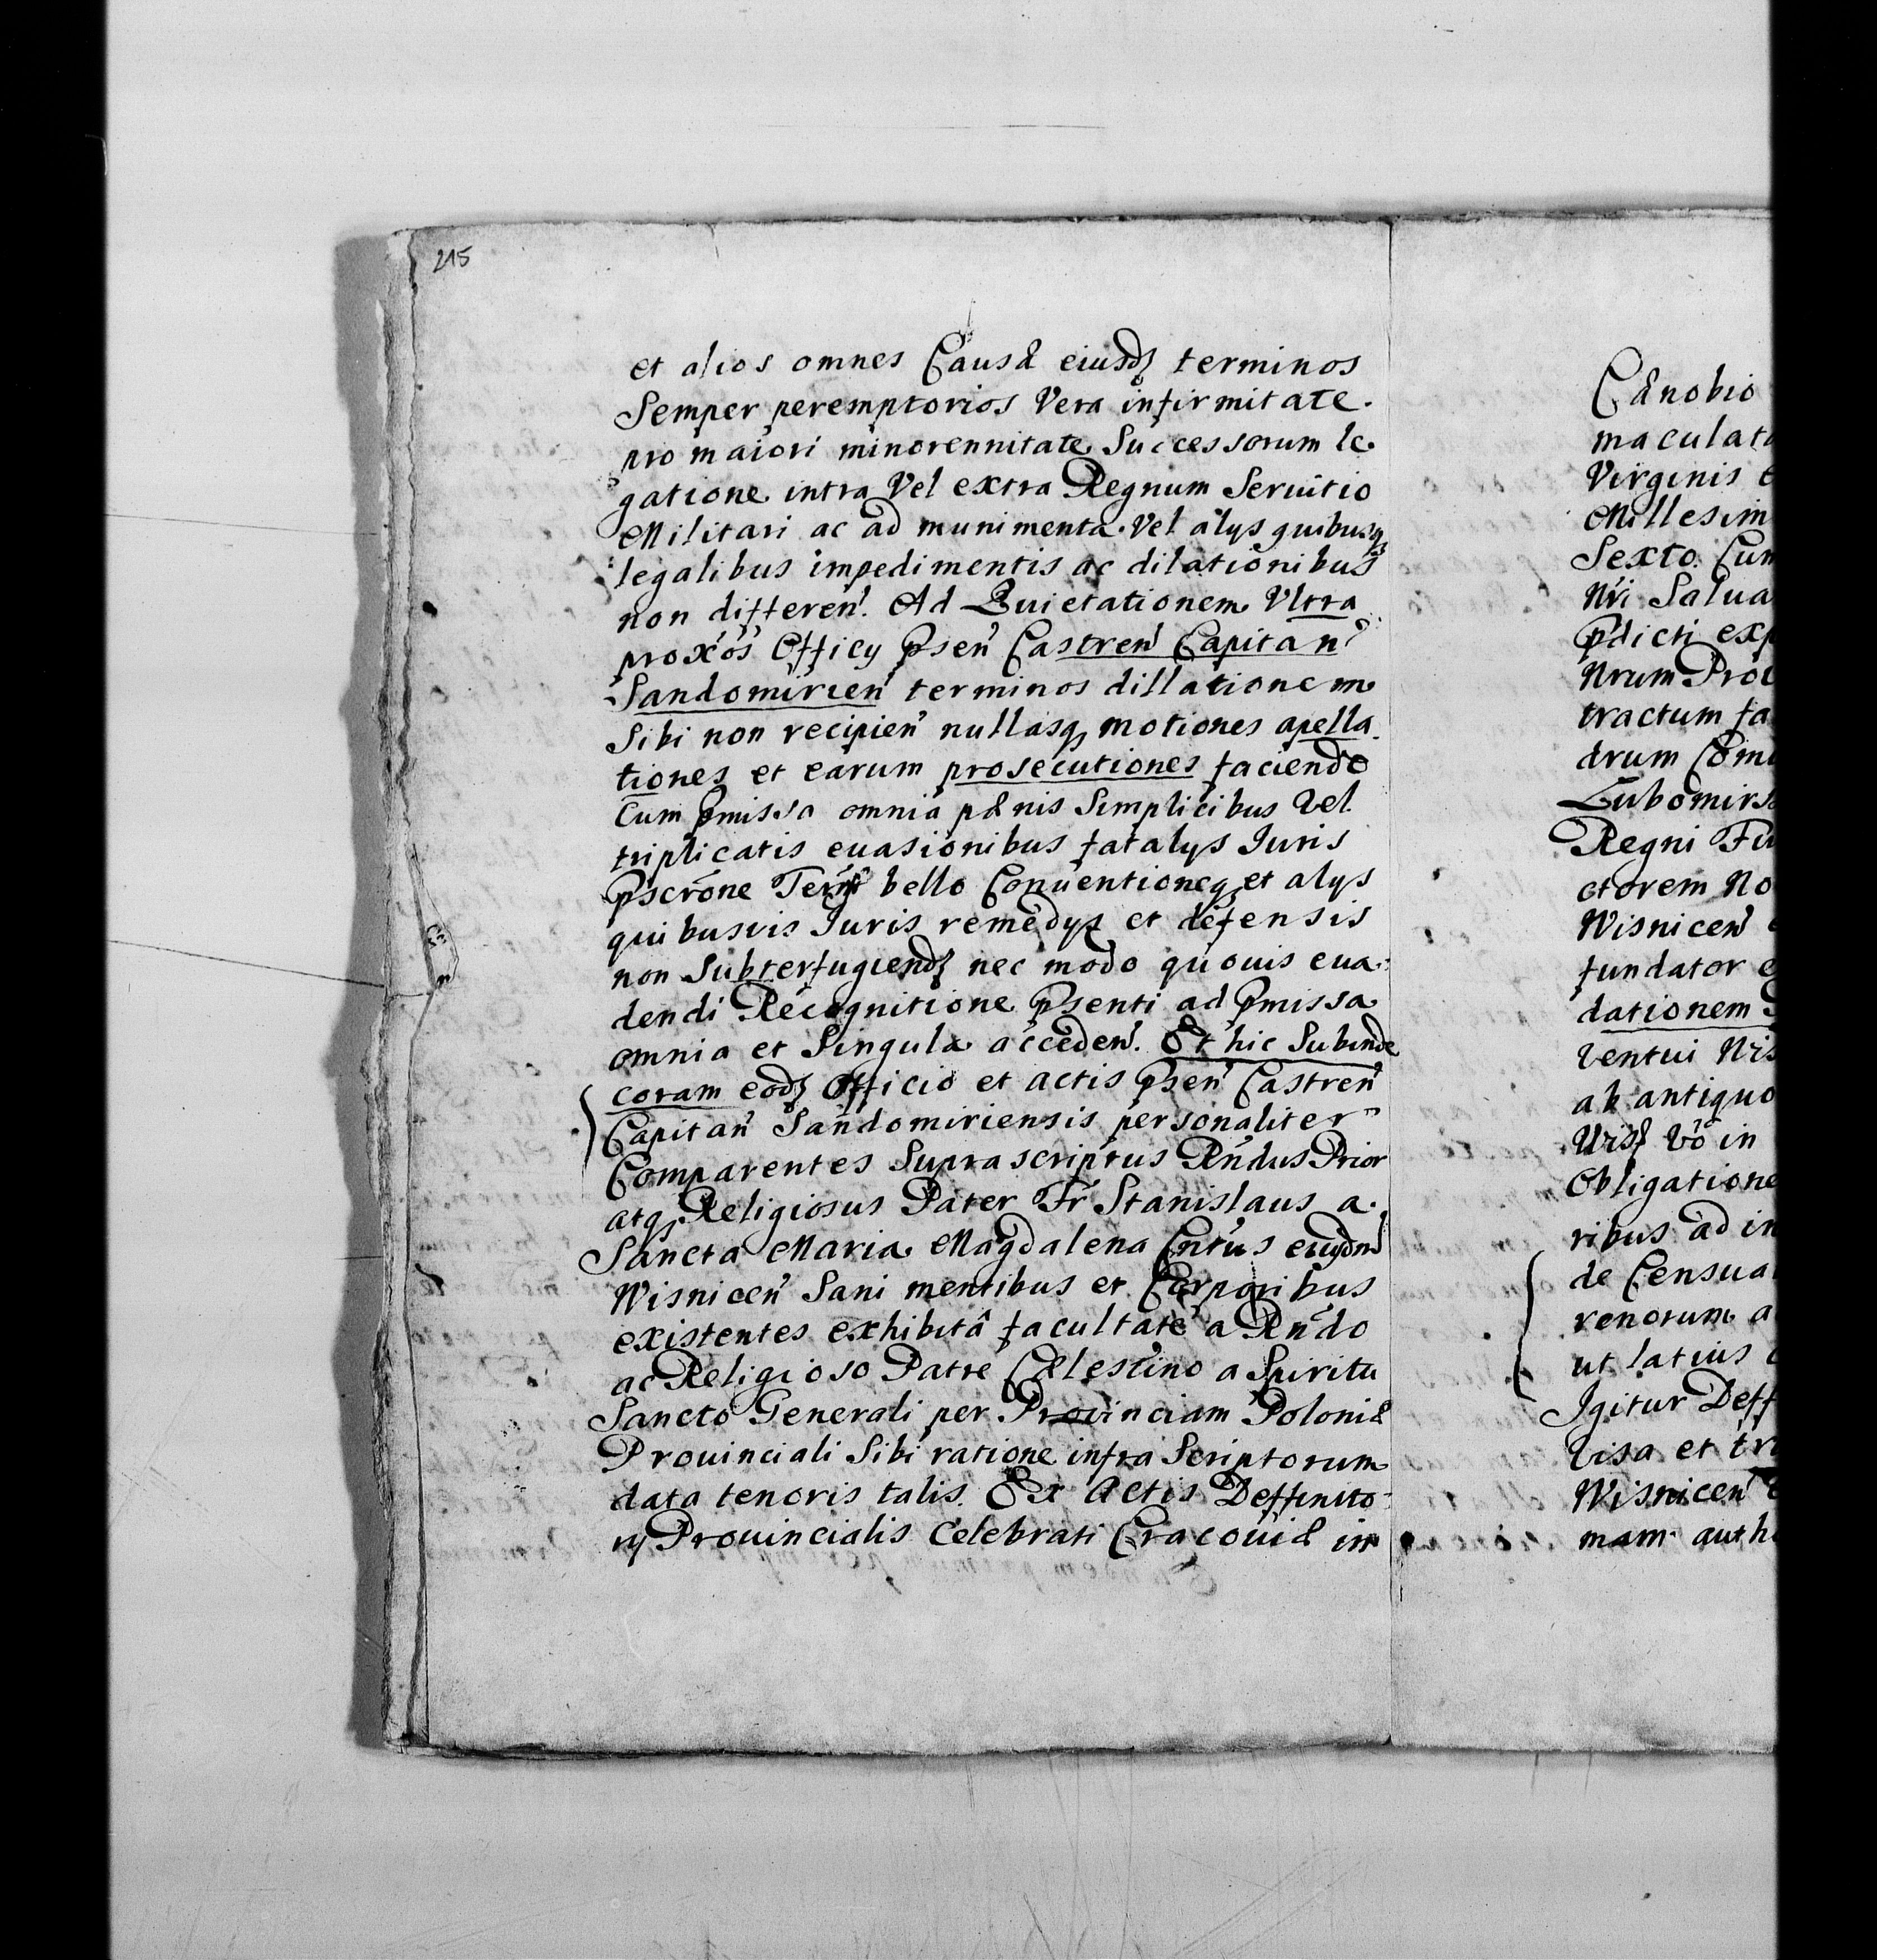 215
et alios omnes Causæ eiusdꝫ terminos
Semper peremptorios Vera infirmitate
pro maiori minorennitate Successorum le
gatione intra Vel extra Regnum Seruitio
Militari ac ad munimenta Vel alys quibusqꝫ
legalibus impedimentis ac dilationibus
non differen̄. Ad Quietationem Ultra
prox̄os Officy p̄sen̄ Castren̄ Capitan̄
Sandomirien̄ terminos dillationem
Sibi non recipien̄ nullasqꝫ motiones apella
tiones et earum prosecutiones faciendo
Cum p̄missa omnia pænis Simplicibus Vel
triplicatis euasionibus fatalys Iuris
p̄scrōne bello Conuentioneqꝫ et alys
quibusuis Iuris remedys et defensis
non Subterfugiendꝫ nec modo quouis eua:
dendi Recognitione p̄senti ad p̄missa
omnia et Singula acceden̄. Et hic Subinde
coram eodꝫ Officio et actis p̄sen̄ Castren̄
Capitan̄ Sandomiriensis personaliter
Comparentes Suprascriptus Rn̄dus Prior
atqꝫ Religiosus Pater Fr̄ Stanislaus a
Sancta Maria Magdalena Cn̄tus eiusdm̄
Wisnicen̄ Sani mentibus et Corporibus
existentes exhibitâ facultate a Rn̄do
ac Religioso Patre Cælestino a Spiritu
Sancto Generali per Prouinciam Poloniæ
Prouinciali Sibi ratione infra Scriptorum
data tenoris talis. Ex Actis Deffinito:
ry Prouincialis Celebrati Cracouiæ in
Cænobio
maculat
Virginis
Millesim
Sexto. Cum
Nr̄i Salua
p̄dicti exp
Nrum Proc
tractum fa
drum Com
Lubomirs
Regni Fu
ctorem No
Wisnicen̄
fundator e
dationem
ventui Wis
ab antiquo
Vo in
Obligatione
ribus ad in
de Censua
renorum a
ut latius
Igitur Deff
Visa et tr
Wisnicen̄
mam auth